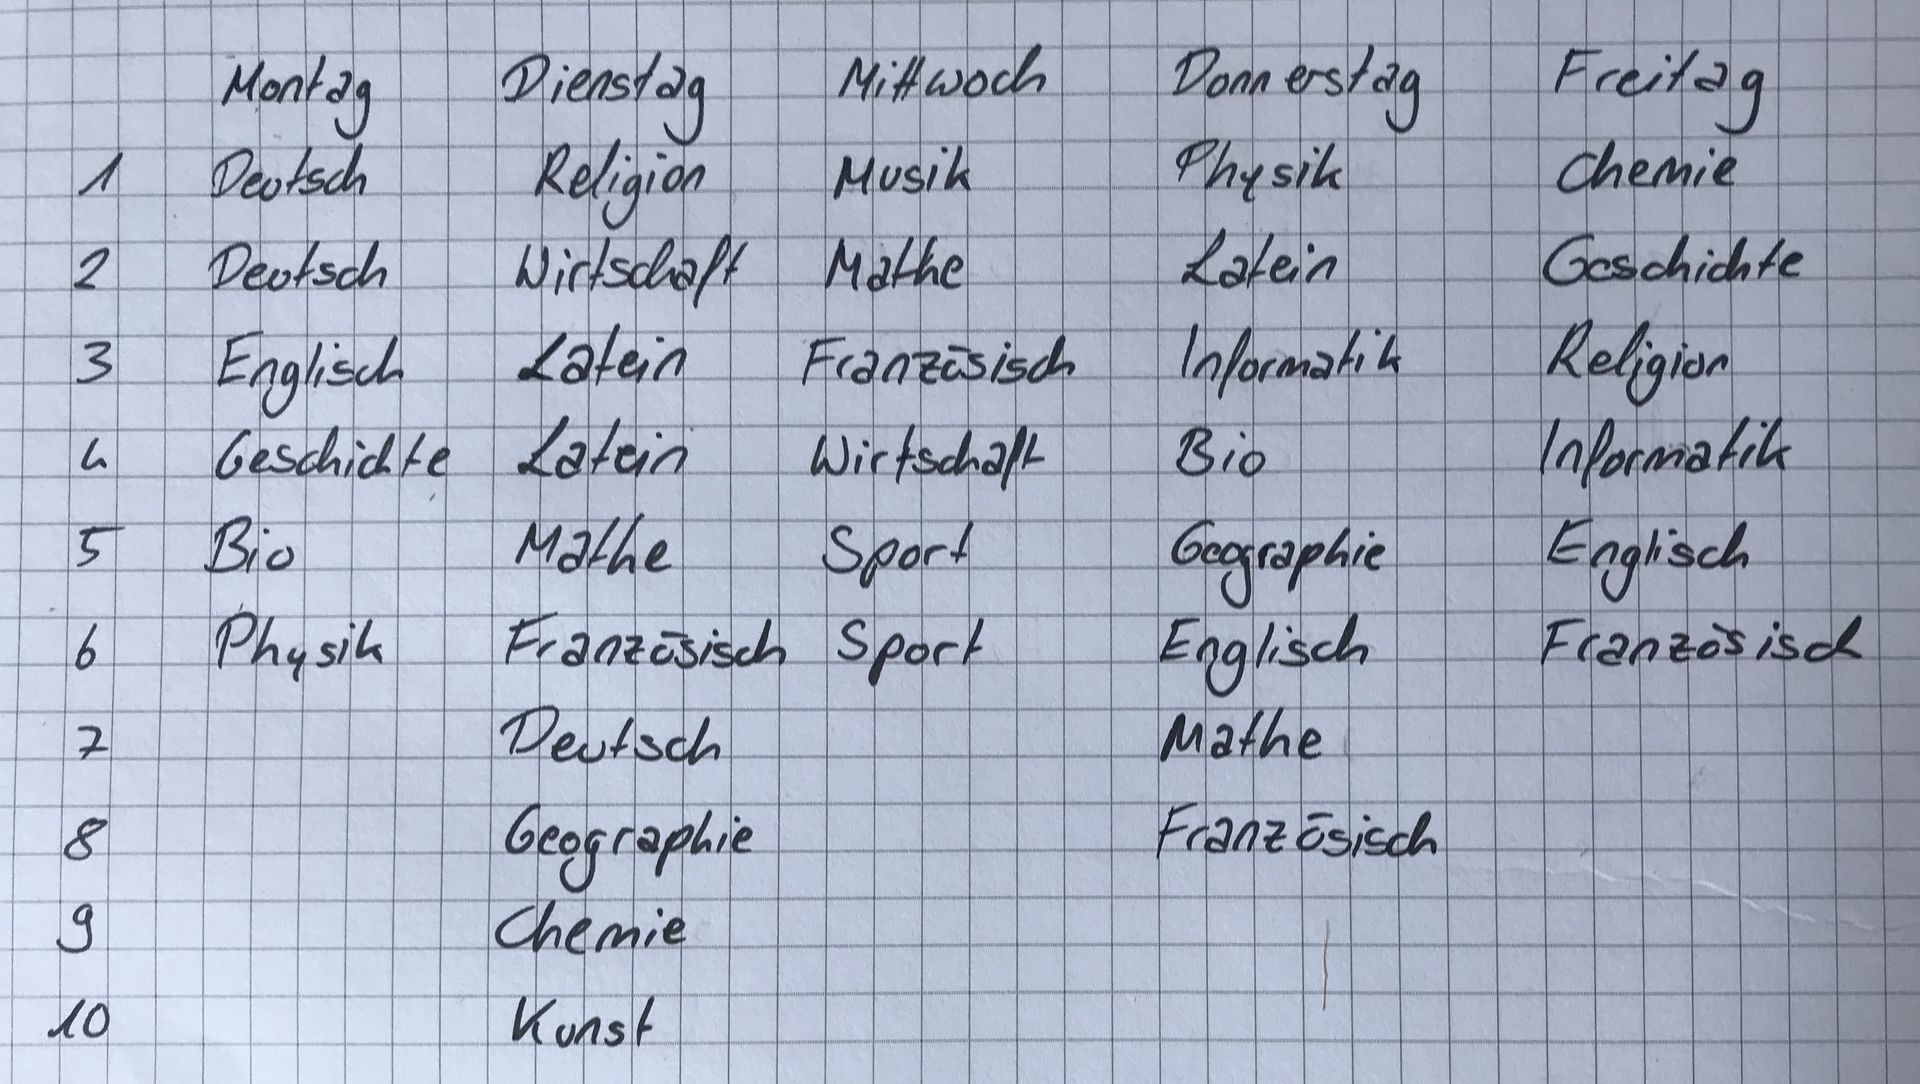 Montag Dienstag Mittwoch Donnerstag Freitag
1 Deutsch Religion Musik Physik Chemie
2 Deutsch Wirtschaft Mathe Latein Geschichte
3 Englisch Latein Französisch Informatik Religion
4 Geschichte Latein Wirtschaft Bio Informatik
5 Bio Mathe Sport Geographie Englisch
6 Physik Französisch Sport Englisch Französisch
7 Deutsch Mathe
8 Geographie Französisch
9 Chemie
10 Kunst